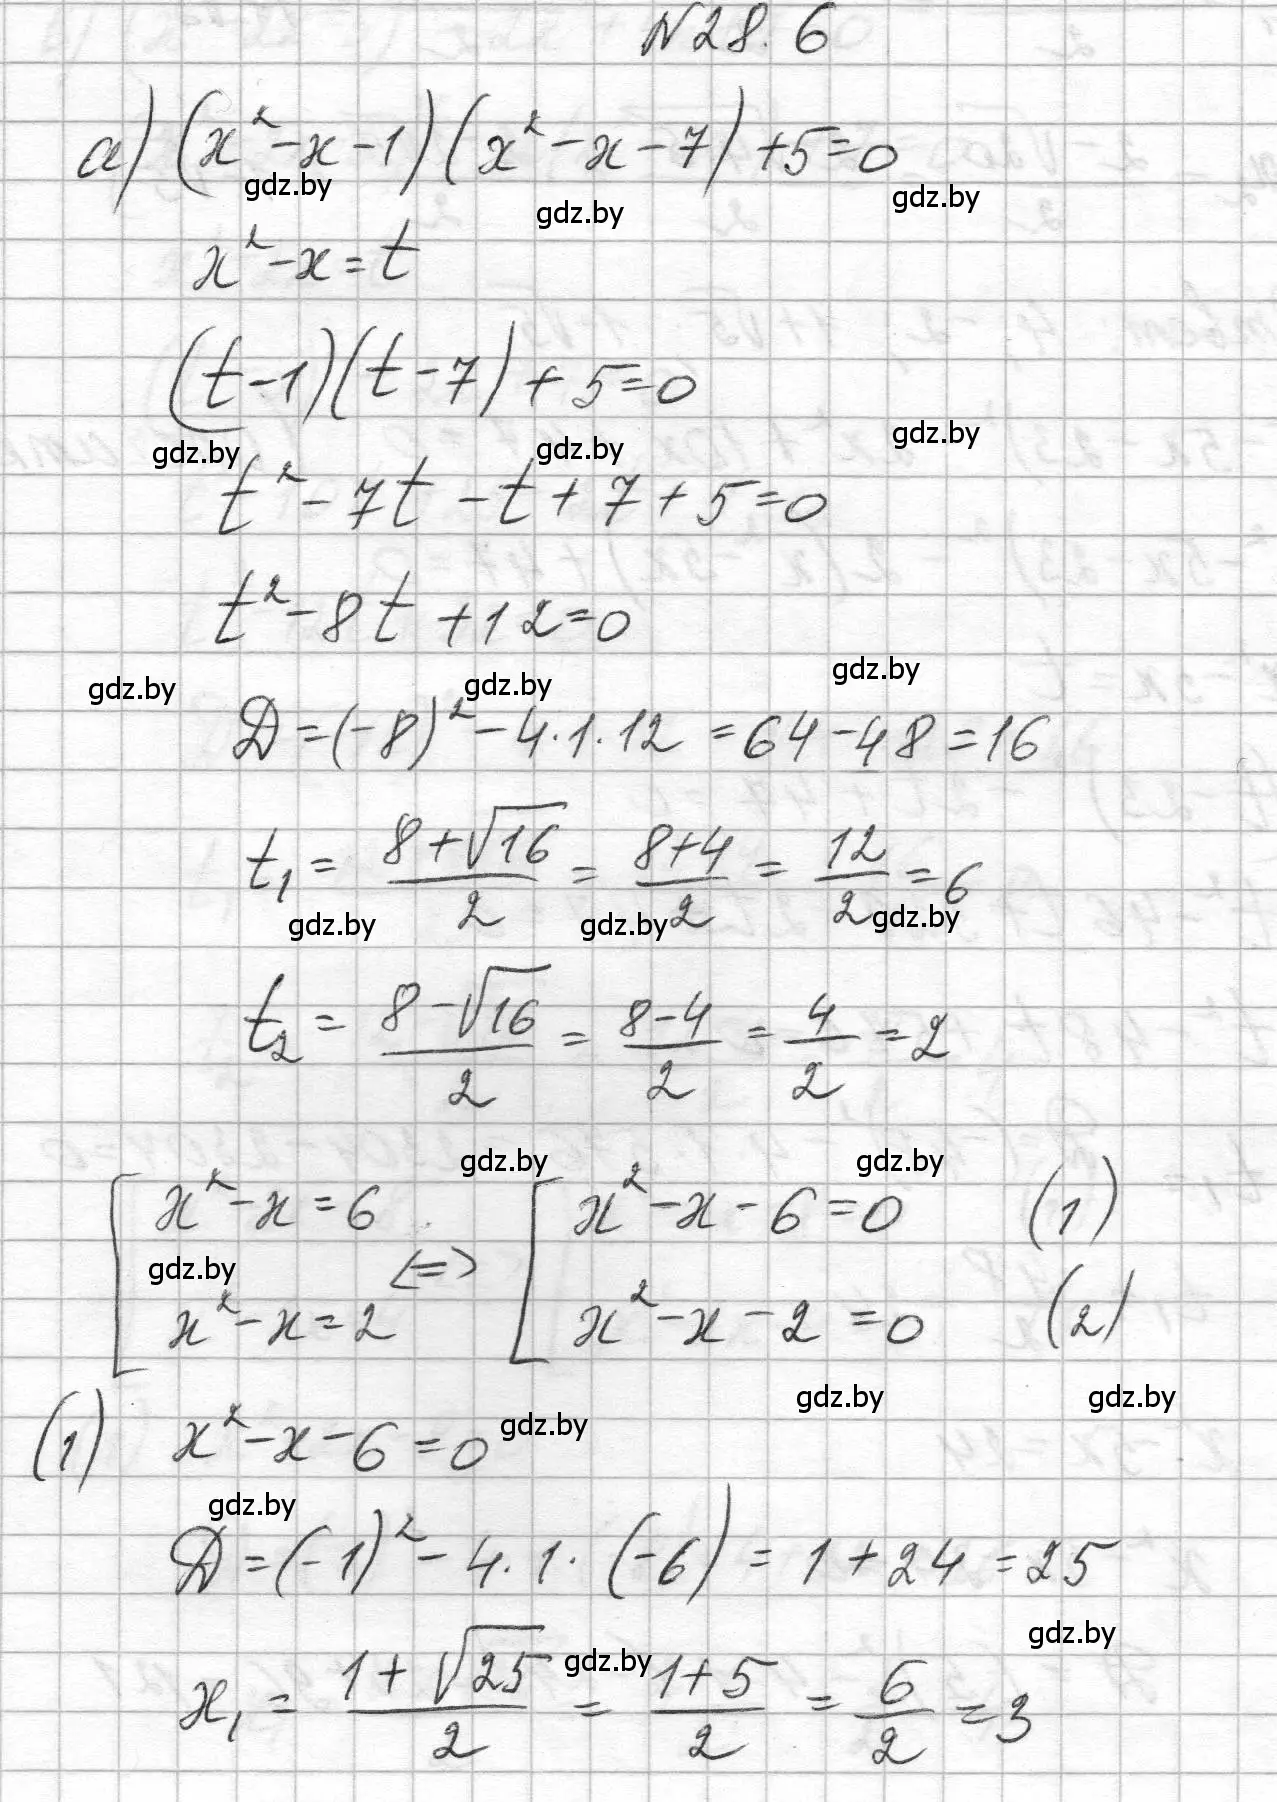 №28.6
а) (x² - x - 1)(x² - x - 7) + 5 = 0
gdz.by gdz.by gdz.by
x² - x = t
(t - 1)(t - 7) + 5 = 0
gdz.by gdz.by gdz.by
t² - 7t - t + 7 + 5 = 0
t² - 8t + 12 = 0
gdz.by gdz.by gdz.by
D = (-8)² - 4·1·12 = 64 - 48 = 16
t₁ = (8 + √16)/2 = (8 + 4)/2 = 12/2 = 6
gdz.by gdz.by gdz.by
t₂ = (8 - √16)/2 = (8 - 4)/2 = 4/2 = 2
gdz.by gdz.by
[ x² - x = 6 <=> [ x² - x - 6 = 0 (1)
gdz.by
x² - x = 2 x² - x - 2 = 0 (2)
gdz.by gdz.by
(1) x² - x - 6 = 0 gdz.by
gdz.by
D = (-1)² - 4·1·(-6) = 1 + 24 = 25
gdz.by gdz.by
x₁ = (1 + √25)/2 = (1 + 5)/2 = 6/2 = 3